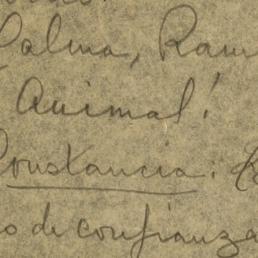 Calma, Ram
Animal!
Constancia:
o de confianza